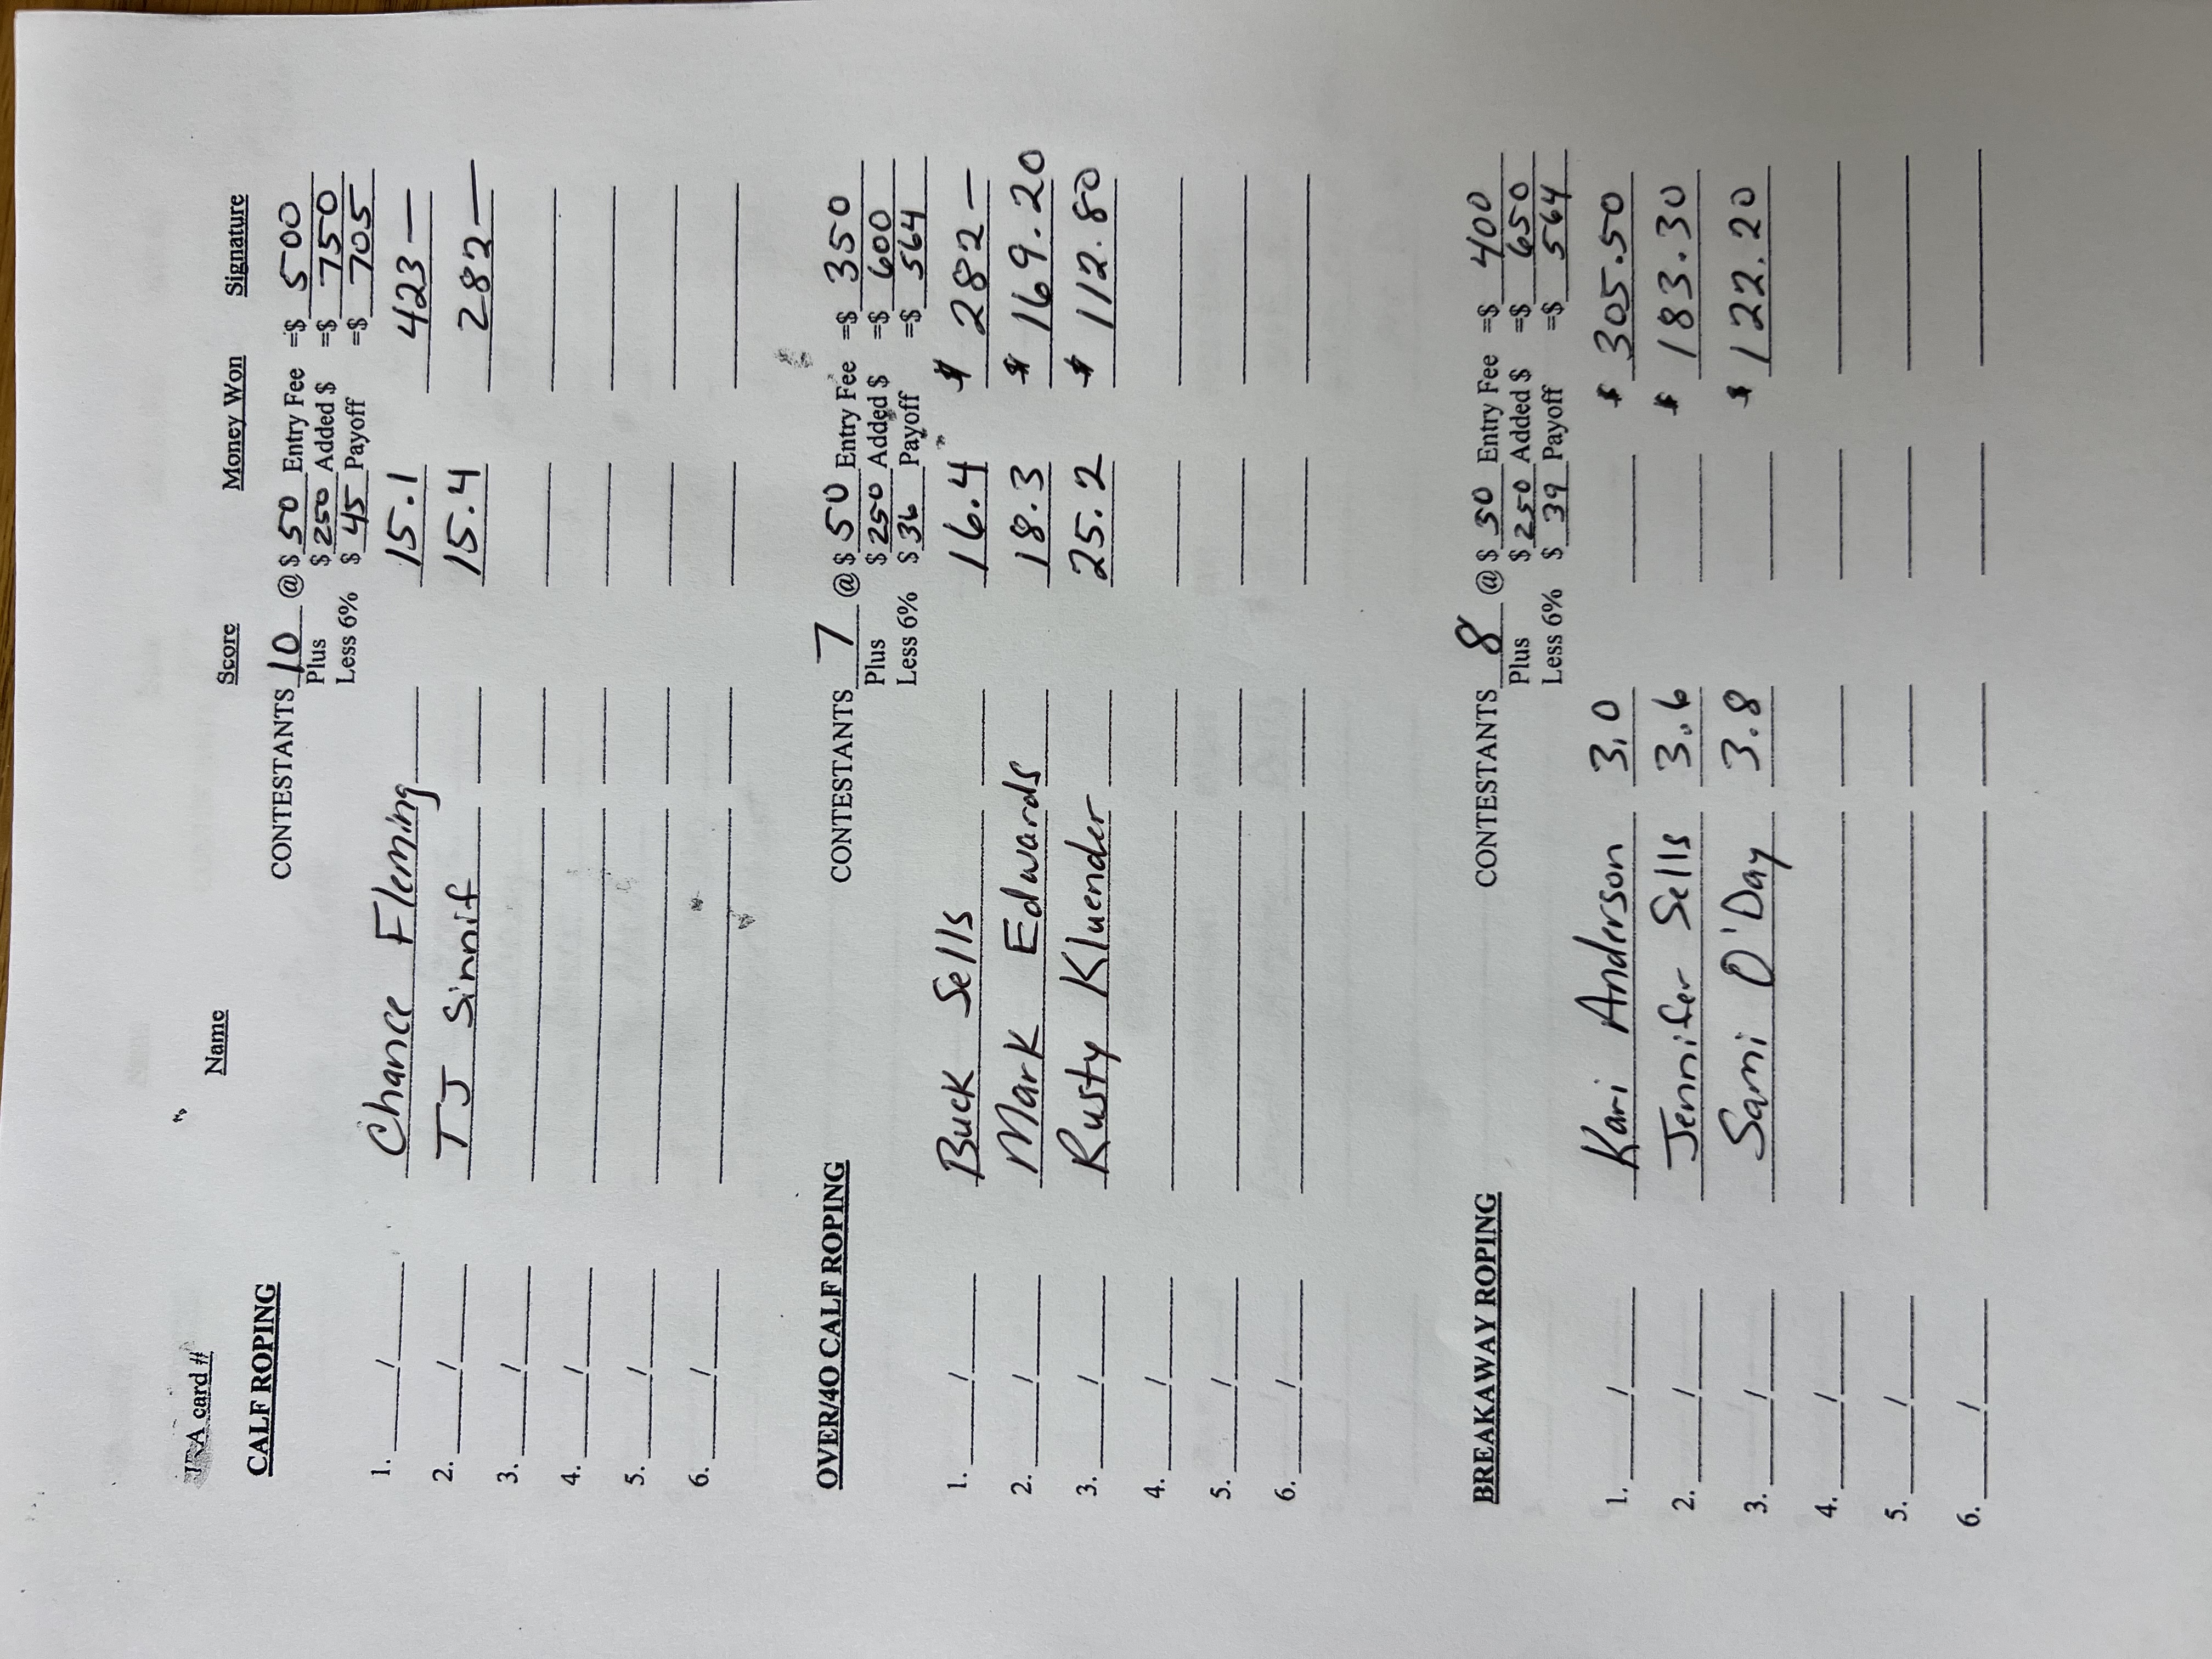 IRA card # Name Score Money Won Signature
CALF ROPING
CONTESTANTS 10 @ $ 50 Entry Fee =$ 500
Plus $ 250 Added $ =$ 750
Less 6% $ 45 Payoff =$ 705
1. / Chance Fleming 15.1 423 —
2. / TJ Sinnif 15.4 282 —
3. /
4. /
5. /
6. /
OVER/40 CALF ROPING
CONTESTANTS 7 @ $ 50 Entry Fee =$ 350
Plus $ 250 Added $ =$ 600
Less 6% $ 36 Payoff =$ 564
1. / Buck Sells 16.4 $ 282 —
2. / Mark Edwards 18.3 $ 169.20
3. / Rusty Kluender 25.2 $ 112.80
4. /
5. /
6. /
BREAKAWAY ROPING
CONTESTANTS 8 @ $ 50 Entry Fee =$ 400
Plus $ 250 Added $ =$ 650
Less 6% $ 39 Payoff =$ 564
1. / Kari Anderson 3.0 $ 305.50
2. / Jennifer Sells 3.6 $ 183.30
3. / Sami O'Day 3.8 $ 122.20
4. /
5. /
6. /